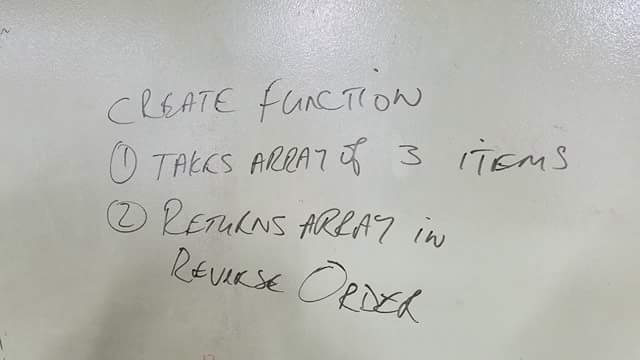 CREATE FUNCTION
① TAKES ARRAY of 3 ITEMS
② RETURNS ARRAY in
REVERSE ORDER